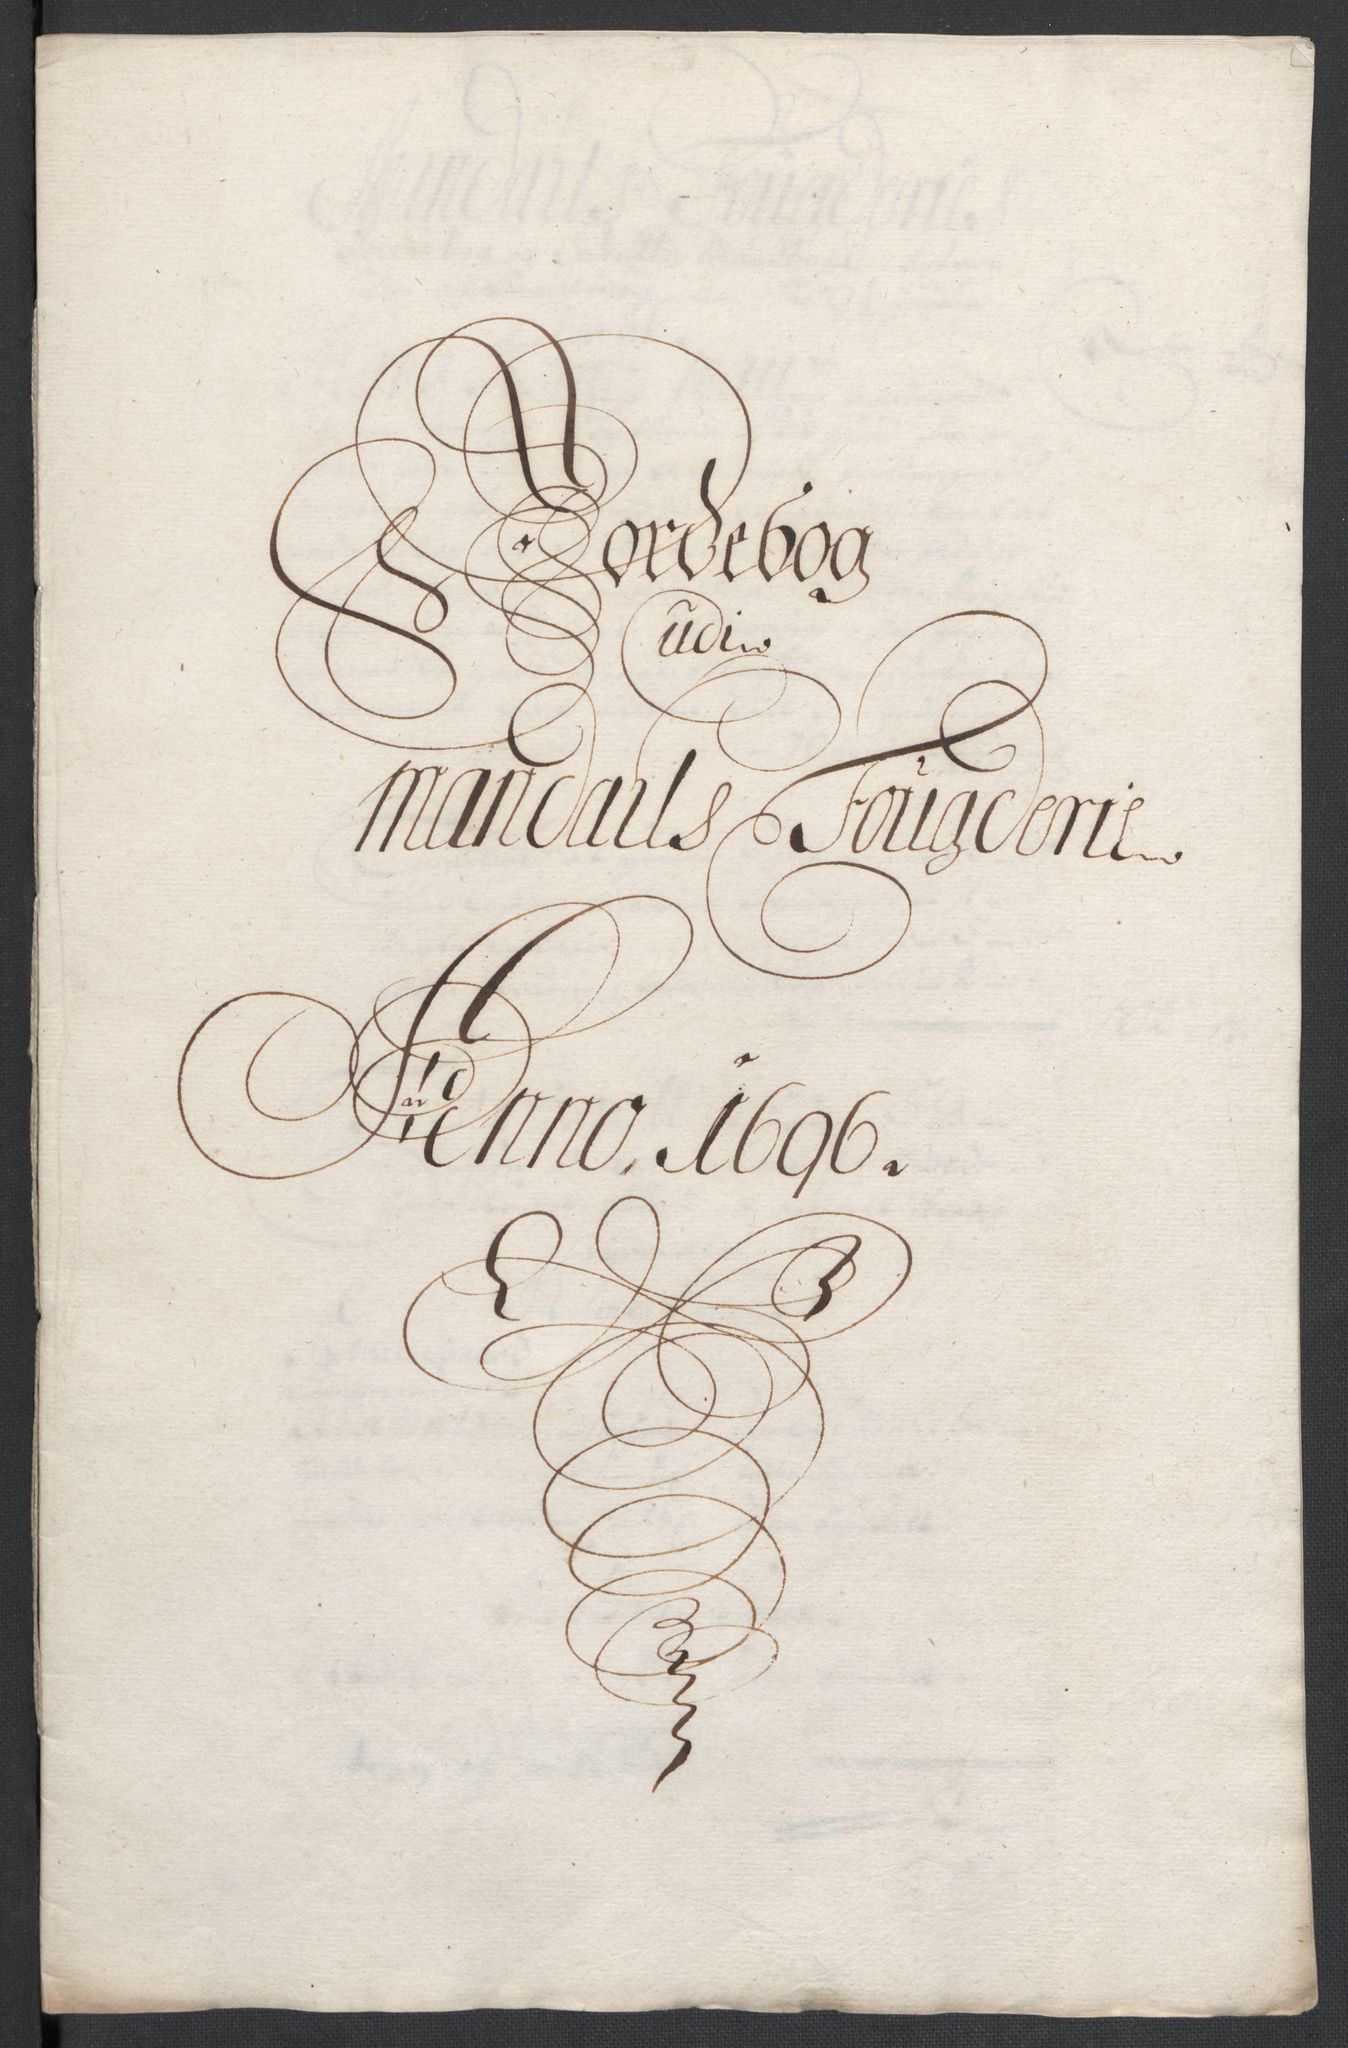 Jordebog
udi
mandals Fougderie
Anno. 1696.